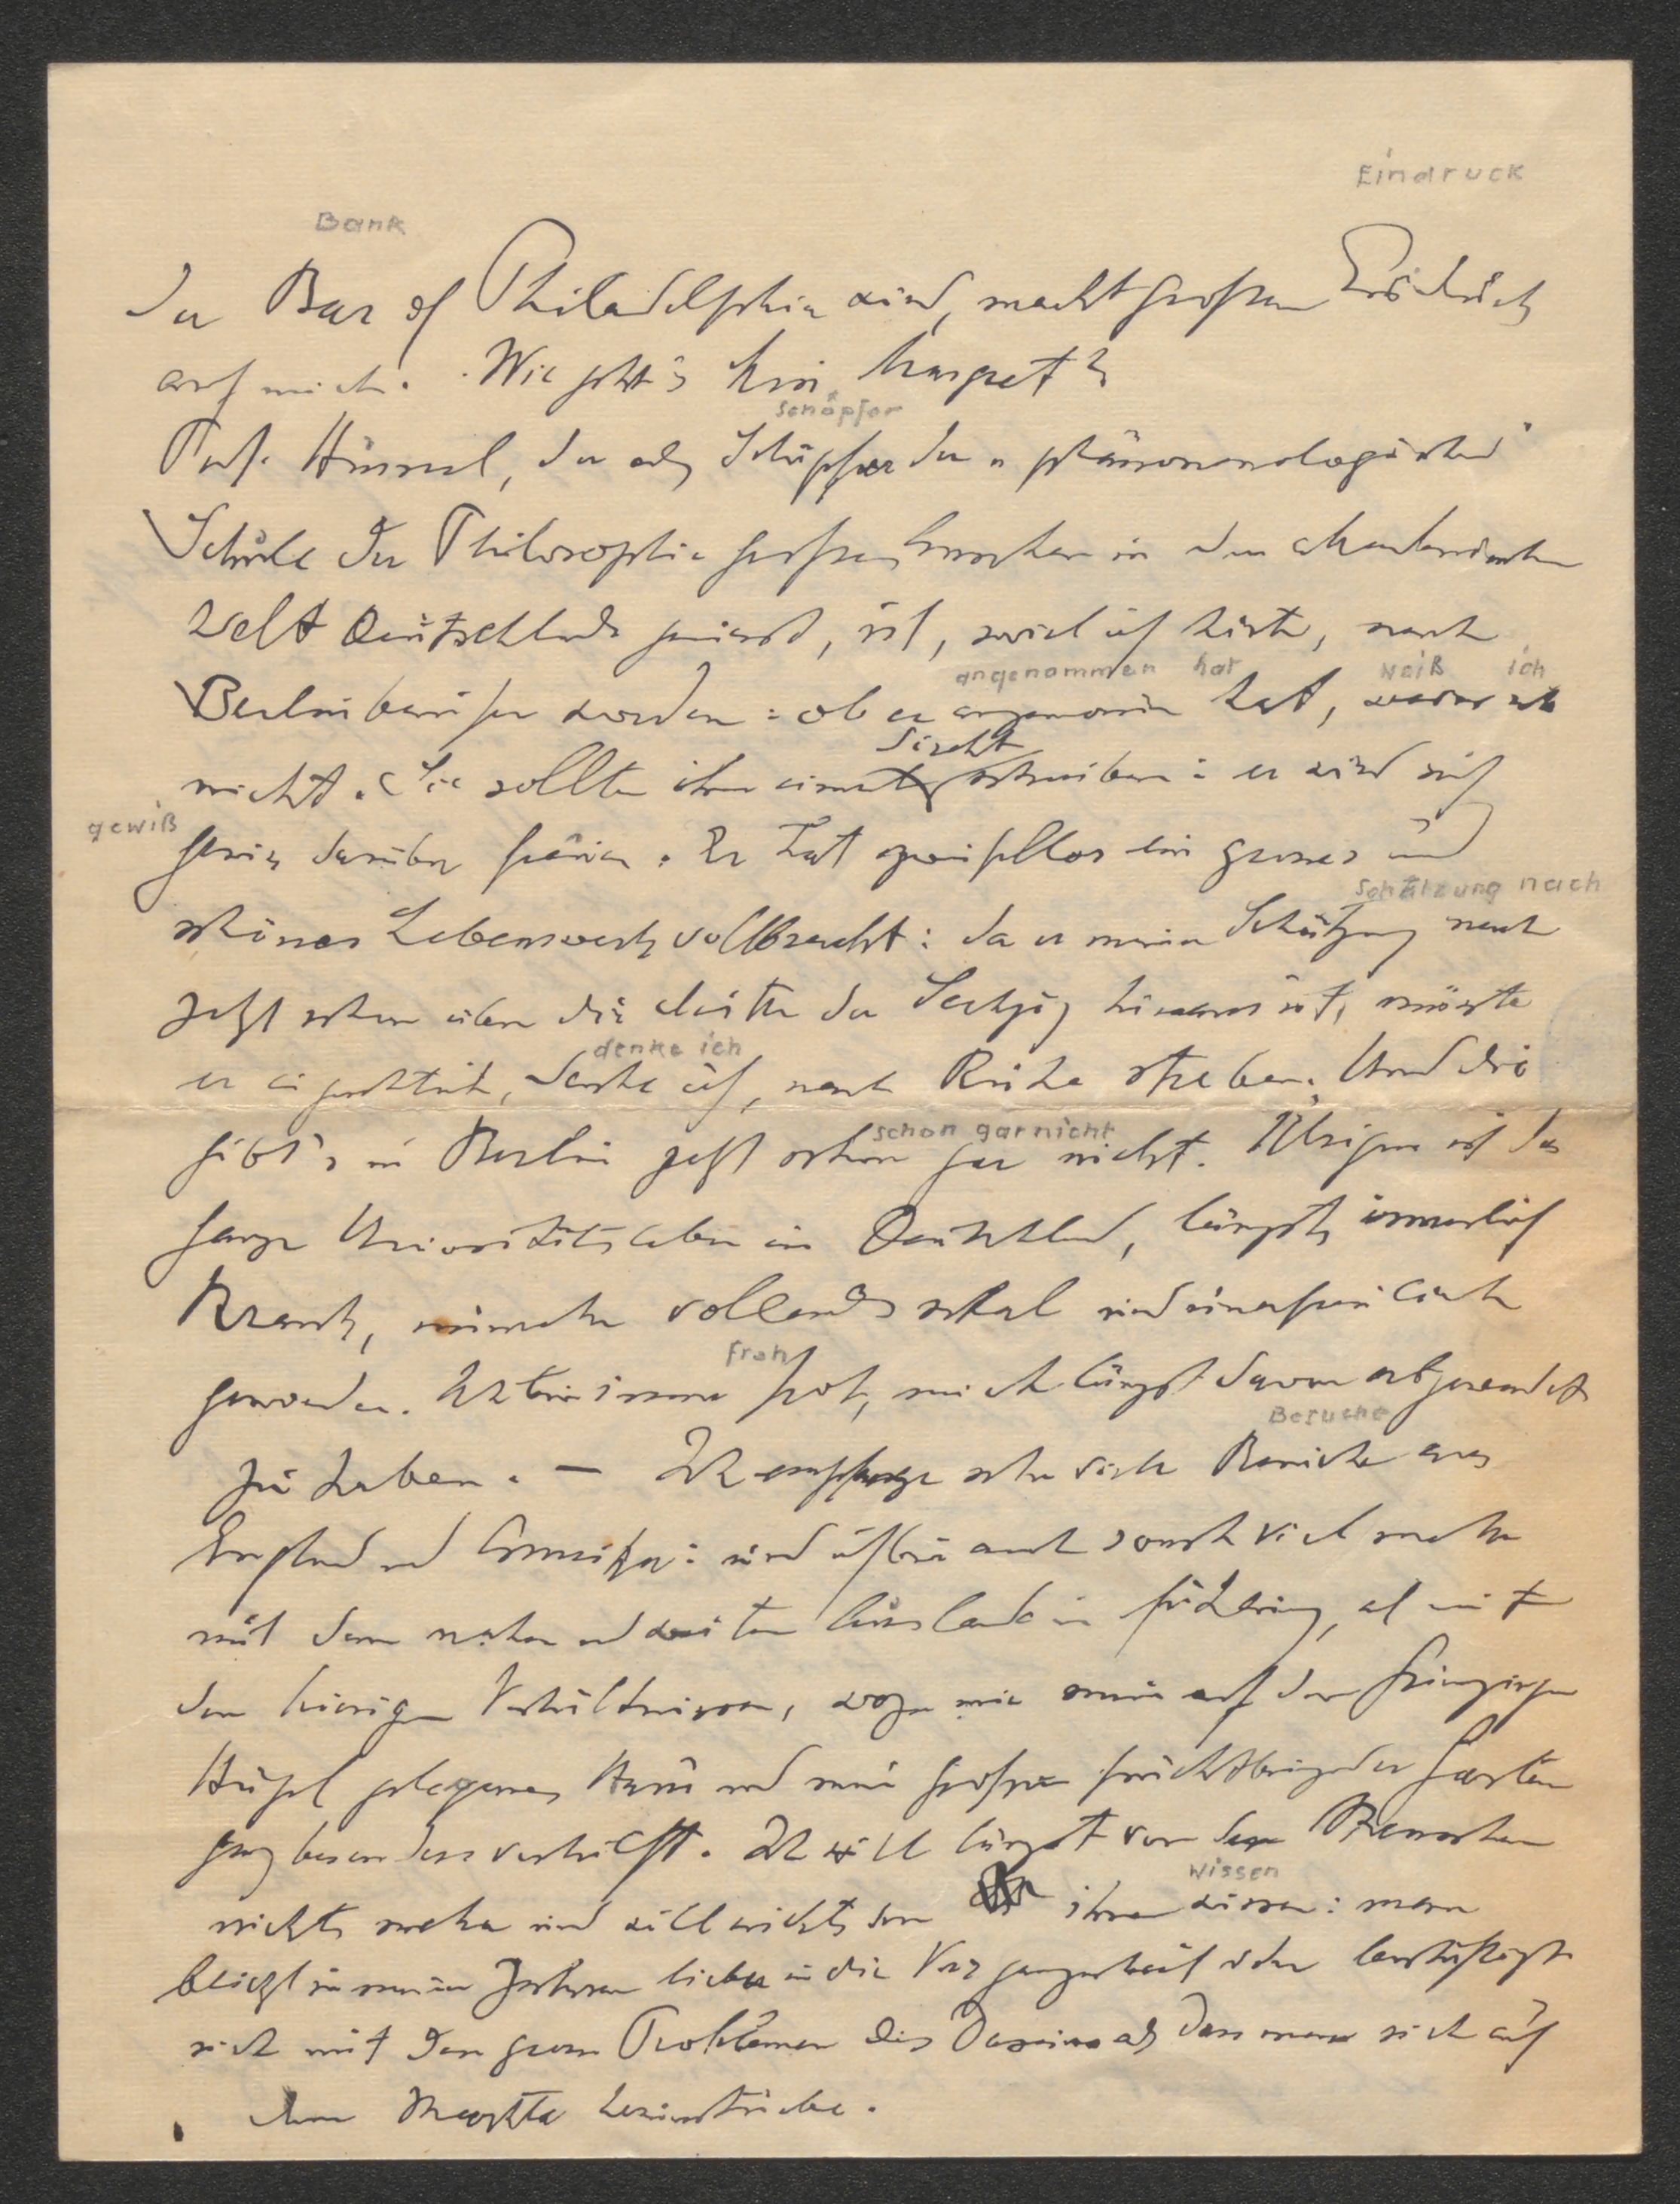 Eindruck
Bank
der Bar of Philadelphia wird, macht großen Eindruck
auf mich. Wie geht's Frl. Margret?
Schöpfer
Prof. Husserl, der als Schöpfer der "phänomenologischen"
Schule der Philosophie großes Ansehen in der akademischen
Welt Deutschlands geniesst, ist, soviel ich hörte, nach
angenommen hat weiß ich
Berlin berufen worden: ob er angenommen hat, weiss ich
direkt
nicht. Sie sollten ihm einmal schreiben: er wird sich
gewiß
gewiss darüber freuen. Er hat zweifellos ein grosses und
Schätzung nach
schönes Lebenswerk vollbracht: da er meiner Schätzung nach
jetzt schon über die Mitte der Sechzig hinaus ist, müsste
denke ich
er eigentlich, denke ich, nach Ruhe streben. Und die
schon garnicht
gibt's in Berlin jetzt schon gar nicht. Übrigens ist das
ganze Universitätsleben in Deutschland, längst innerlich
krank, nunmehr vollends schal und unerfreulich
froh
geworden. Ich bin immer froh, mich längst davon abgewendet
Besuche
zu haben. — Ich empfange sehr viele Besuche aus
England und Amerika: und ich bin auch sonst viel mehr
mit dem nahen und weiten Auslande in Fühlung, als mit
den hiesigen Verhältnissen, wozu mir mein auf den
Hügel gelegenes Haus und mein großer fruchtbringender Garten
ganz besonders verhilft. Ich will längst von den Menschen
wissen
nichts mehr und will nichts von ihnen wissen: man
blickt in meinen Jahren lieber in die Vergangenheit oder beschäftigt
sich mit den grossen Problemen des Daseins als dass man sich auf
dem Markte herumtriebe.